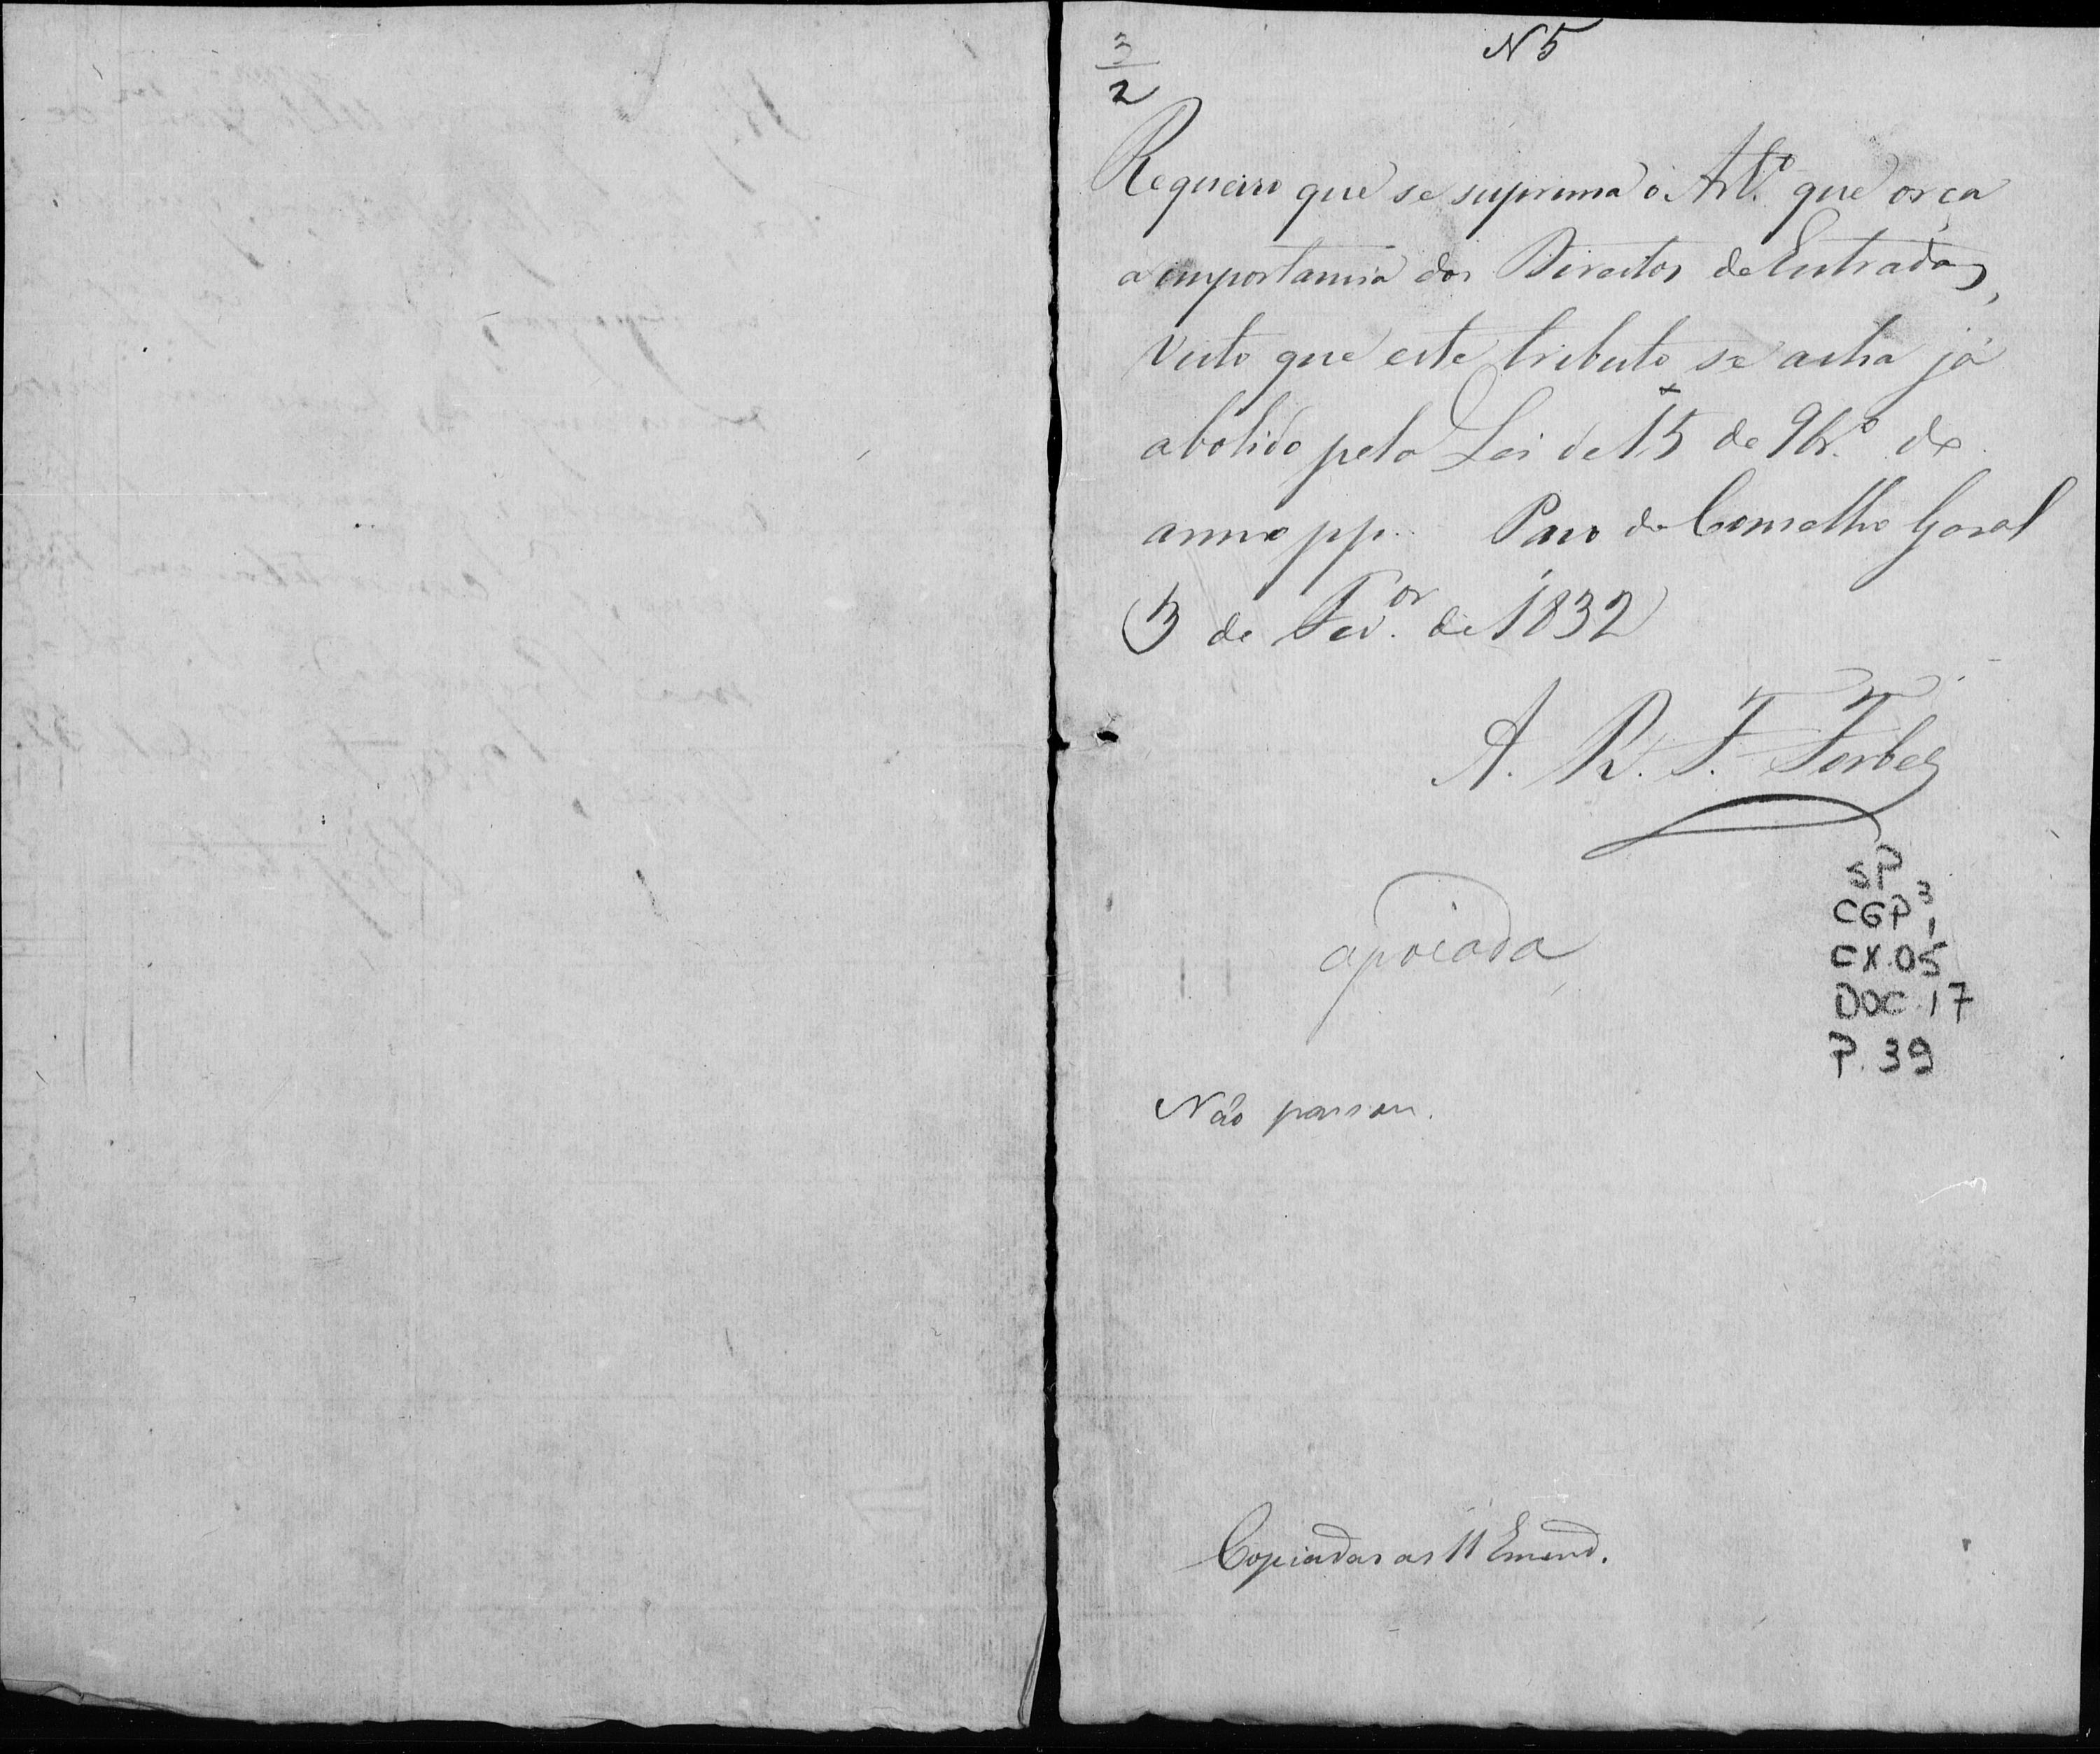 3
2
N 5
Requeiro que se suprima o Art.º que orça
a importancia dos Direitos de Entradas,
visto que este tributo se acha já
abolido pela Lei de 15 de 9br.º do
anno pp. Paço do Conselho Geral
3 de Fev.or de 1832
A. R. F. Forbes
apoiada
SP
CGP 3,1
CX.05
DOC.17
P.39
Não passou.
Copiadas as 11 Emend.